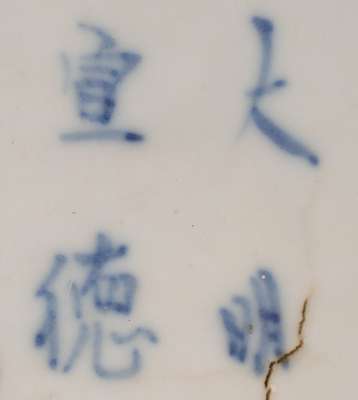 大明
宣德